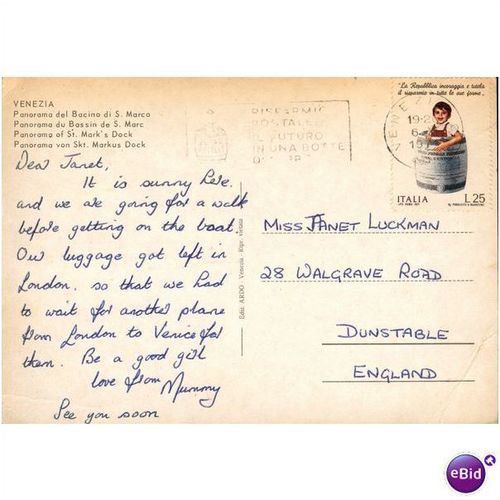 VENEZIA
Panorama del Bacino di S. Marco
Panorama du Bassin de S. Marc
Panorama of St. Mark's Dock
Panorama von Skt. Markus Dock
Dear Janet,
It is sunny here.
and we are going for a walk
before getting on the boat.
Our luggage got left in
London. so that we had
to wait for another plane
from London to Venice for
them. Be a good girl
love from Mummy
See you soon
Ediz. ARDO - Venezia - Ripr. vietata
RISPARMIO
POSTALE
IL FUTURO
IN UNA BOTTE
VENEZIA
19-2
6
"La Repubblica incoraggia e tutela
il risparmio in tutte le sue forme"
ITALIA
L.25
MISS JANET LUCKMAN
28 WALGRAVE ROAD
DUNSTABLE
ENGLAND
eBid